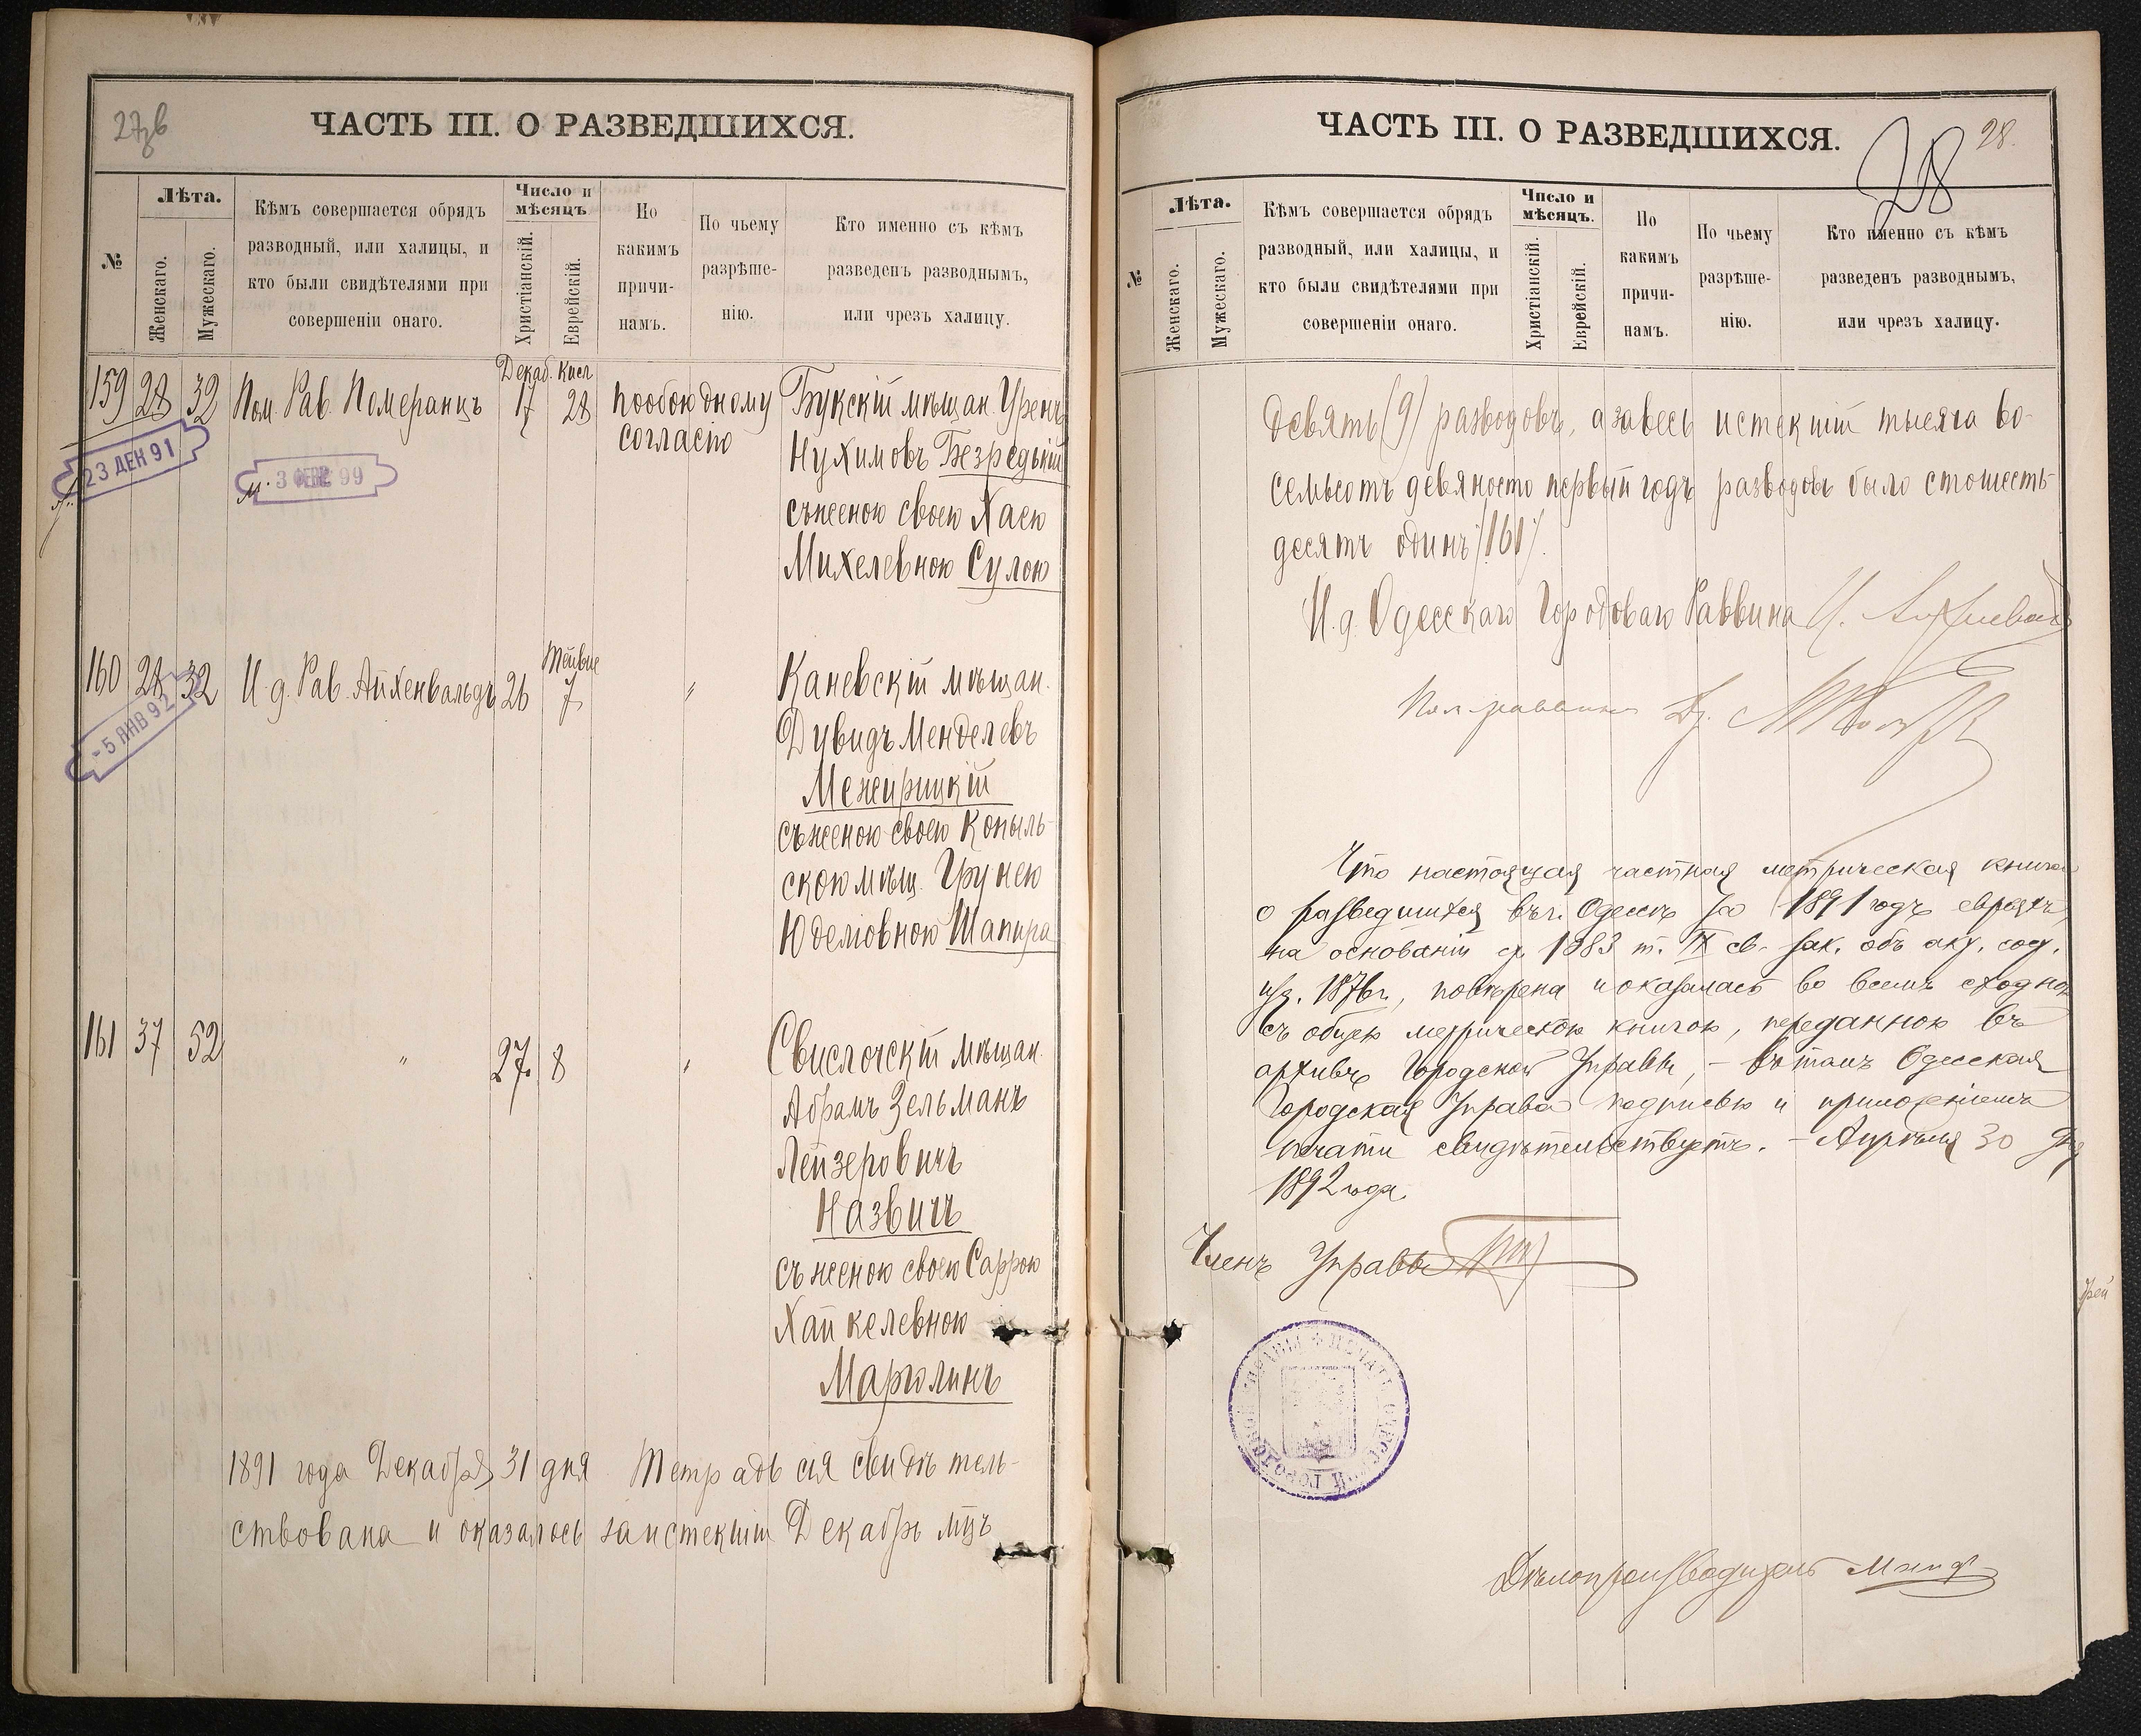 27об
ЧАСТЬ III. О РАЗВЕДШИХСЯ.
№
Лѣта.
Женскаго.
Мужескаго.
Кѣмъ совершается обрядъ
разводный, или халицы, и
кто были свидѣтелями при
совершеніи онаго.
Число и
мѣсяцъ
Христіанскій.
Еврейскій.
По
какимъ
причи-
намъ.
По чьему
разрѣше-
нію.
Кто именно съ кѣмъ
разведенъ разводнымъ,
или чрезъ халицу.
Декаб. Кисл
159 28 32 Пом. Рав. Померанцъ 17 28 по обоюдному
согласію
Букскій мѣщан. Уренъ
Нухимовъ Безредькій
съ женою своею Хаею
Михелевною Сулою
23 ДЕК 91
м. 3 ФЕВ 99
Тейвис
160 28 32 И. д. Рав. Айхенвальдъ 26 7 "
Каневскій мѣщан.
Дувидъ Менделевъ
Межирицкій
съ женою своею Копыль-
скою мѣщ. Грунею
Юделіовною Шапира
- 5 ЯНВ 92
161 37 52 " 27. 8 "
Свислочскій мѣщан.
Абрамъ Зельманъ
Лейзеровичъ
Назвичъ
съ женою своею Саррою
Хайкелевною
Марголинъ
1891 года Декабря 31 дня Тетрадь сія свидѣтель-
ствована и оказалось за истекшій Декабрь мцъ
ЧАСТЬ III. О РАЗВЕДШИХСЯ.
28
28.
№
Лѣта.
Женскаго.
Мужескаго.
Кѣмъ совершается обрядъ
разводный, или халицы, и
кто были свидѣтелями при
совершеніи онаго.
Число и
мѣсяцъ.
Христіанскій.
Еврейскій.
По
какимъ
причи-
намъ.
По чьему
разрѣше-
нію.
Кто именно съ кѣмъ
разведенъ разводнымъ,
или чрезъ халицу.
девять (9) разводовъ, а за весь истекшій тысяча во-
семьсотъ девяносто первый годъ разводовъ было стошесть-
десятъ одинъ /161/.
И. д. Одесскаго Городоваго Раввина
Пом. раввина Др.
Что настоящая частная метрическая книга
о разведшихся въ г. Одессѣ за 1891 годъ евреяхъ
на основаніи ст. 1083 т. IX св. зак. объ акт. сост.
изд. 1876 г., повѣрена и оказалась во всемъ сходною
съ общею метрическою книгою, переданною въ
архивъ Городской Управы, - въ томъ Одесская
Городская Управа подписью и приложеніемъ
печати свидѣтельствуетъ. - Апрѣля 30 дня
1892 года.
Членъ Управы
Дѣлопроизводитель